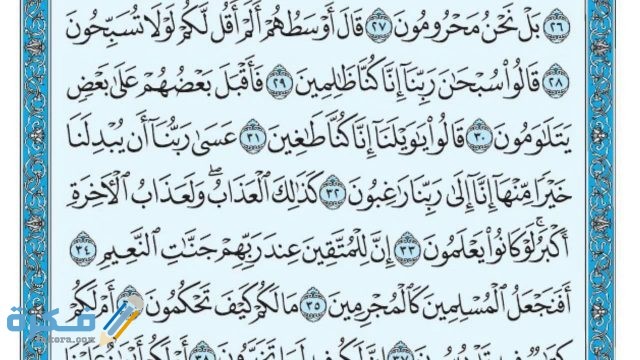 ٢٦ بَلْ نَحْنُ مَحْرُومُونَ ٢٧ قَالَ أَوْسَطُهُمْ أَلَمْ أَقُل لَّكُمْ لَوْلَا تُسَبِّحُونَ
٢٨ قَالُوا۟ سُبْحَٰنَ رَبِّنَآ إِنَّا كُنَّا ظَٰلِمِينَ ٢٩ فَأَقْبَلَ بَعْضُهُمْ عَلَىٰ بَعْضٍ
يَتَلَٰوَمُونَ ٣٠ قَالُوا۟ يَٰوَيْلَنَآ إِنَّا كُنَّا طَٰغِينَ ٣١ عَسَىٰ رَبُّنَآ أَن يُبْدِلَنَا
خَيْرًا مِّنْهَآ إِنَّآ إِلَىٰ رَبِّنَا رَٰغِبُونَ ٣٢ كَذَٰلِكَ ٱلْعَذَابُ ۖ وَلَعَذَابُ ٱلْأَخِرَةِ
أَكْبَرُ ۚ لَوْ كَانُوا۟ يَعْلَمُونَ ٣٣ إِنَّ لِلْمُتَّقِينَ عِندَ رَبِّهِمْ جَنَّٰتِ ٱلنَّعِيمِ ٣٤
أَفَنَجْعَلُ ٱلْمُسْلِمِينَ كَٱلْمُجْرِمِينَ ٣٥ مَا لَكُمْ كَيْفَ تَحْكُمُونَ أَمْ لَكُمْ
فكرة